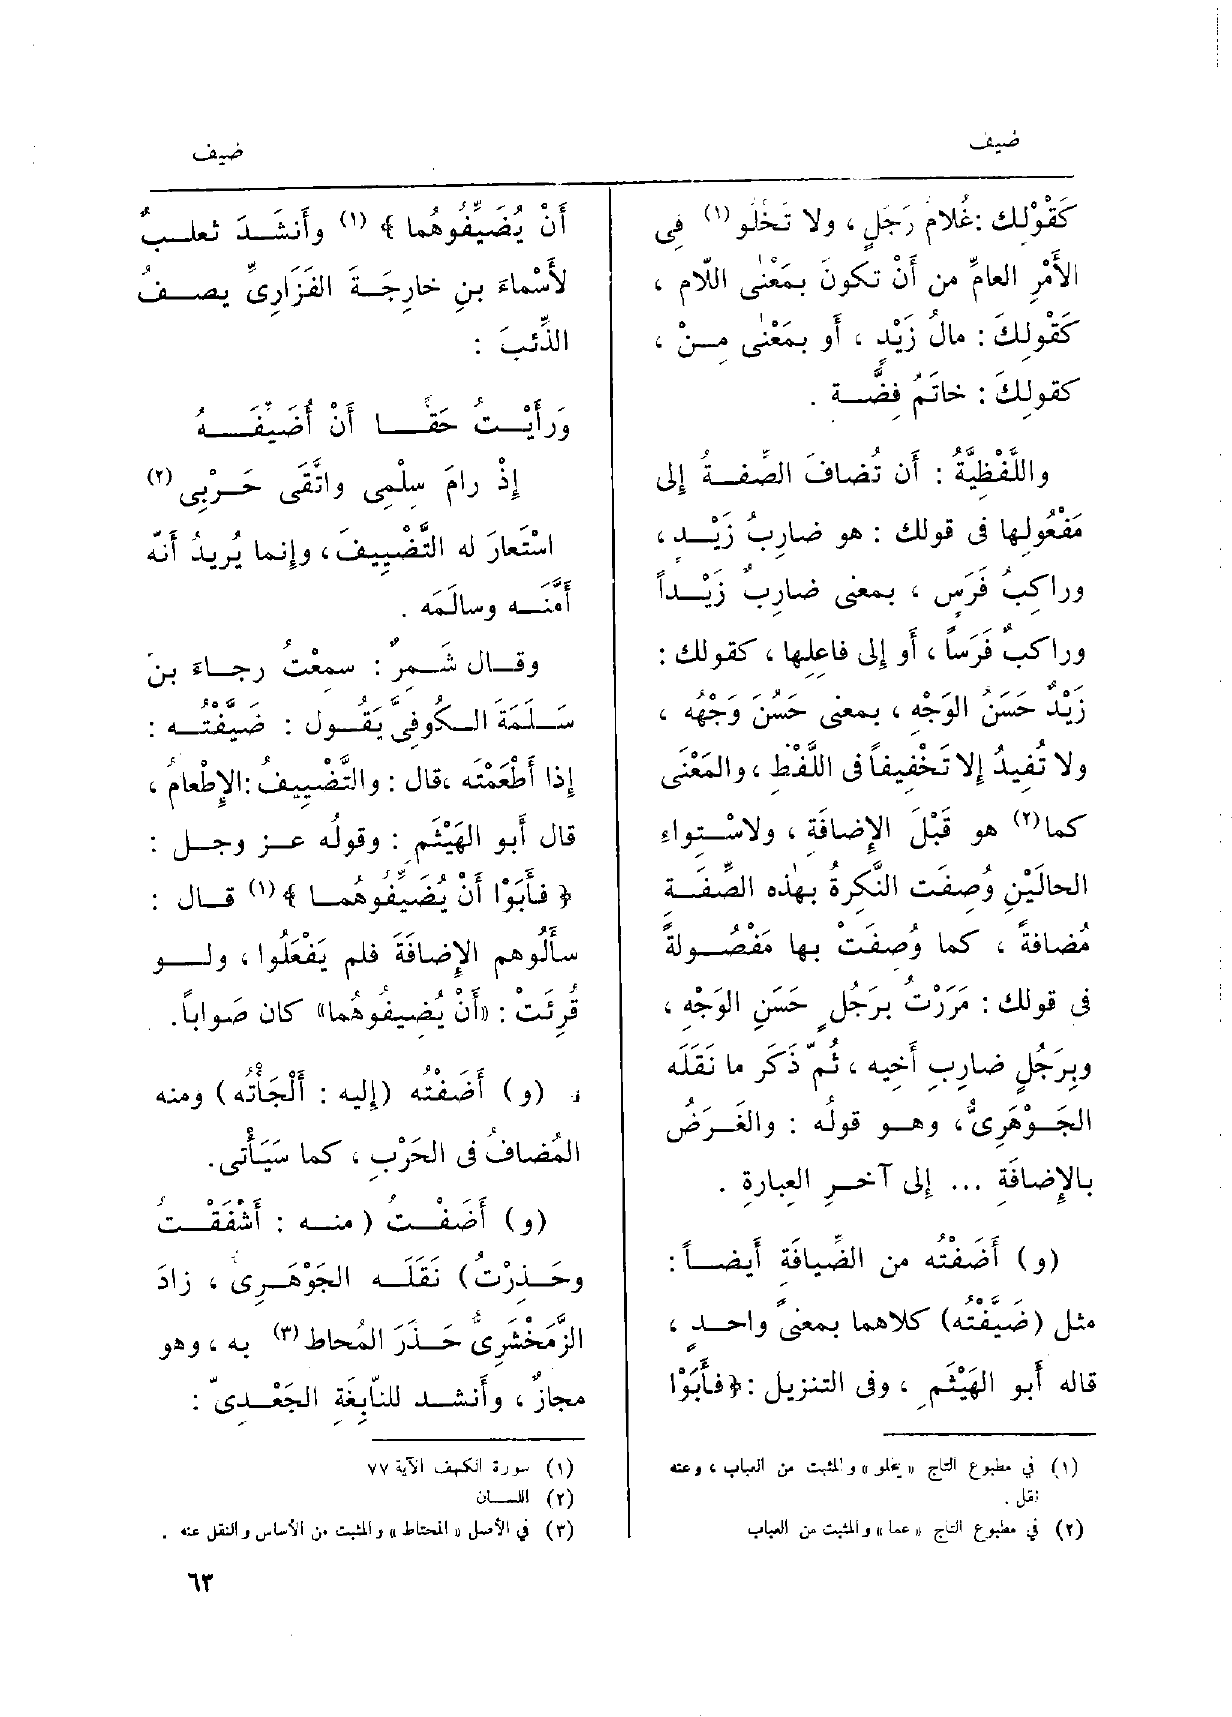 ضيف
ضيف
كَقَوْلِك : غُلامُ رَجُلٍ ، ولا تَخْلُو (١) فِى
الأَمْرِ العامِّ من أَنْ تكونَ بمَعْنَى اللّام ،
كَقَوْلِكَ : مالُ زَيْدٍ ، أَو بمَعْنَى مِـنْ ،
كقولِكَ : خاتَمُ فِضَّـــة .
واللَّفْظِيَّةُ : أَن تُضافَ الصِّفــةُ إلى
مَفْعُولِها فى قولك : هو ضارِبُ زَيْــدٍ ،
وراكِبُ فَرَسٍ ، بمعنى ضارِبٌ زَيْــداً
وراكبٌ فَرَساً ، أَو إلى فاعِلِها ، كقولك :
زَيْدٌ حَسَنُ الوَجْهِ ، بمعنى حَسُنَ وَجْهُه ،
ولا تُفِيدُ إلا تَخْفِيفاً فى اللَّفْظِ ، والمَعْنَى
كما (٢) هو قَبْلَ الإِضافَةِ ، ولاسْــتواءِ
الحالَيْنِ وُصِفَت النَّكِرةُ بهٰذه الصِّفَــةِ
مُضافةً ، كما وُصِفَتْ بها مَفْصُــولةً
فى قولك : مَرَرْتُ برَجُلٍ حَسَنِ الوَجْهِ ،
وبِرَجُلٍ ضارِبِ أَخِيه ، ثُمّ ذَكَر ما نَقَلَه
الجَــوْهَرِىُّ ، وهــو قولُه : والغَــرَضُ
بالإِضافَةِ ... إلى آخــرِ العِبارةِ .
(و) أَضَفْتُه من الضِّيافَةِ أَيضــاً :
مثل (ضَيَّفْتُه) كلاهما بمعنىً واحــدٍ ،
قاله أَبو الهَيْثَمِ ، وفى التنزيل : ﴿ فأَبَوْا
(١) في مطبوع التاج « يخلو » والمثبت من العباب ، وعنه
نقل .
(٢) في مطبوع التاج « عما » والمثبت من العباب
أَنْ يُضَيِّفُوهُما ﴾ (١) وأَنشَــدَ ثعلــبٌ
لأَسْماءَ بنِ خارِجَــةَ الفَزارِىِّ يصــفُ
الذِّئبَ :
وَرَأَيْــتُ حَقــًّـا أَنْ أُضَيِّفَــــهُ
إِذْ رامَ سِلْمِى واتَّقَى حَــرْبِى (٢)
اسْتَعارَ له التَّضْيِيفَ ، وإنما يُرِيدُ أَنّه
أَمَّنَــه وسالَمَه .
وقــال شَــمِرٌ : سمعْتُ رجــاءَ بنَ
سَــلَمَةَ الــكُوفِىَّ يَقُــول : ضَيَّفْتُــه :
إذا أَطْعَمْتَه ، قال : والتَّضْيِيفُ : الإِطْعامُ ،
قال أَبو الهَيْثَمِ : وقولُه عــز وجــل :
﴿ فأَبَوْا أَنْ يُضَيِّفُوهُمــا ﴾ (١) قــال :
سأَلُوهم الإِضافَةَ فلم يَفْعَلُوا ، ولــو
قُرِئَت : «أَنْ يُضِيفُوهُما» كان صَواباً .
(و) أَضَفْتُه (إليه : أَلْجَأْتُه) ومنه
المُضافُ فى الحَرْبِ ، كما سَيَأْتى .
(و) أَضَفْــتُ (منــه : أَشْفَقْــتُ
وحَــذِرْتُ) نَقَلَــه الجَوْهَــرِىُّ ، زادَ
الزَّمَخْشَرِىُّ حَــذَرَ المُحاط (٣) به ، وهو
مجازٌ ، وأَنشــد للنّابِغَةِ الجَعْــدِىّ :
(١) سورة الكهف الآية ٧٧
(٢) اللســان
(٣) في الأصل « المحتاط » والمثبت من الأساس والنقل عنه .
٦٣